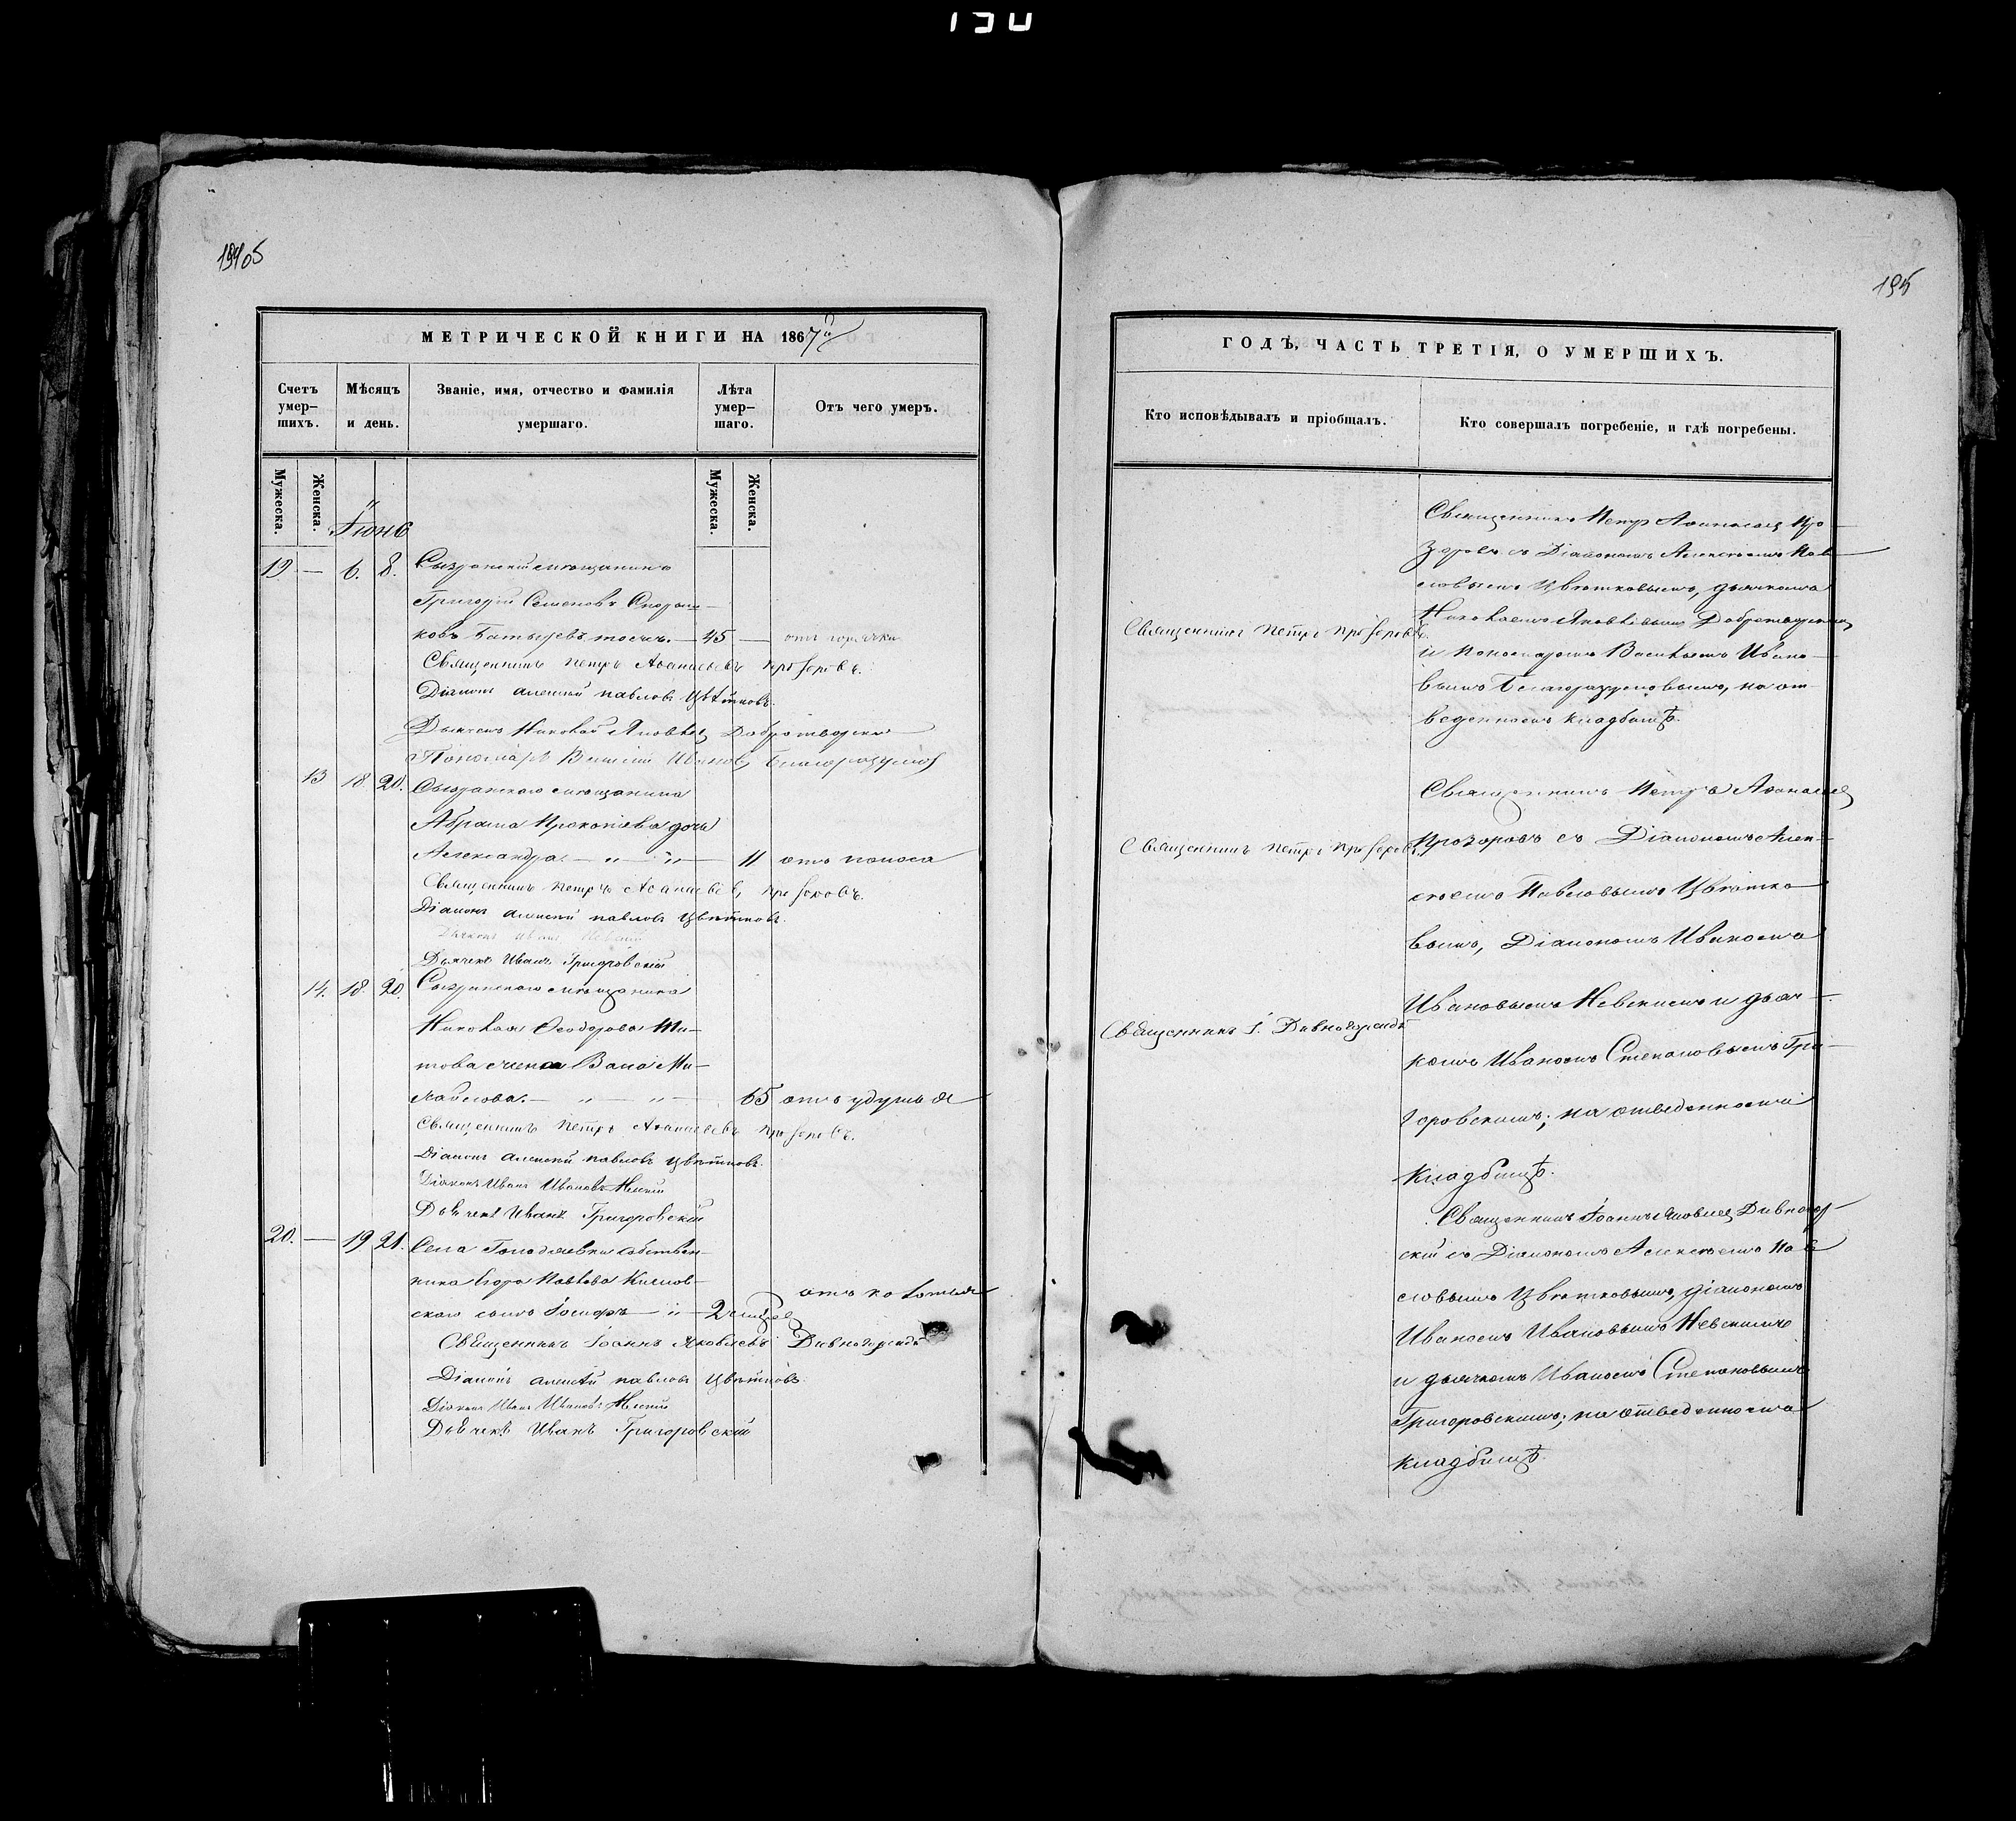 130
195
МЕТРИЧЕСКОЙ КНИГИ НА 1867й
Счетъ умер-
шихъ.
Мѣсяцъ
и день.
Званіе, имя, отчество и фамилія
умершаго.
Лѣта
умер-
шаго.
Отъ чего умеръ.
Мужеска.
Женска.
Мужеска.
Женска.
Іюнь
19 — 6. 8. Сызранскій мѣщанинъ
Григорій Семеновъ
ковъ — 45 — отъ горячки
Священникъ Петръ Аѳанасьевъ Прозоровъ.
Діаконъ Алексѣй Павловъ Цвѣтковъ.
Дьячекъ Николай Яковлев Добротворскій
Пономарь Василій Иванов Благоразумов
13 18 20. Сызранскаго мѣщанина
Абрама Прокопіева дочь
Александра — „ — „ — 11 отъ поноса
Священникъ Петръ Аѳанасьев Прозоровъ.
Діаконъ Алексѣй Павловъ Цвѣтковъ.
Діаконъ Иванъ Невскій
Дьячекъ Иванъ Григоровскій
14. 18 20. Сызранскаго мѣщанина
Николая Ѳеодорова Ти-
това жена Васса Ми-
хайлова. — „ — „ — 65 отъ удушья
Священникъ Петръ Аѳанасьевъ Прозоровъ.
Діаконъ Алексѣй Павловъ Цвѣтковъ.
Діаконъ Иванъ Ивановъ Невскій
Дьячекъ Иванъ Григоровскій
20. — 19 21. Села собствен-
ника Егора Павлова
скаго сынъ Іосифъ — „ — 2 мѣсяц
Священникъ Іоаннъ Яковлевъ Дивногорскій
Діаконъ Алексѣй Павловъ Цвѣтковъ.
Діаконъ Иванъ Ивановъ Невскій
Дьячекъ Иванъ Григоровскій
195
ГОДЪ, ЧАСТЬ ТРЕТІЯ, О УМЕРШИХЪ.
Кто исповѣдывалъ и пріобщалъ.
Кто совершалъ погребеніе, и гдѣ погребены.
Священникъ Петръ Прозоровъ.
Священникъ Петръ Аѳанасьев Про-
зоровъ съ Діакономъ Алексѣемъ Пав-
ловымъ Цвѣтковымъ, дьячкомъ
Николаемъ Яковлевымъ Добротворским
и Пономаремъ Васильемъ Ивано-
вымъ Благоразумовымъ, на от-
веденномъ кладбищѣ.
Священникъ Петръ Прозоровъ.
Священникъ Петръ Аѳанасьев
Прозоровъ съ Діакономъ Алек-
сѣемъ Павловымъ Цвѣтко-
вымъ, Діакономъ Иваномъ
Ивановымъ Невскимъ и дьяч-
комъ Иваномъ Степановымъ Гри-
горовскимъ; на отведенномъ
кладбищѣ.
Священникъ І. Дивногорскій
Священникъ Іоаннъ Яковлев Дивногор-
скій съ Діакономъ Алексѣемъ Пав-
ловымъ Цвѣтковымъ, діакономъ
Иваномъ Ивановымъ Невскимъ
и дьячкомъ Иваномъ Степановымъ
Григоровскимъ; на отведенномъ
кладбищѣ.